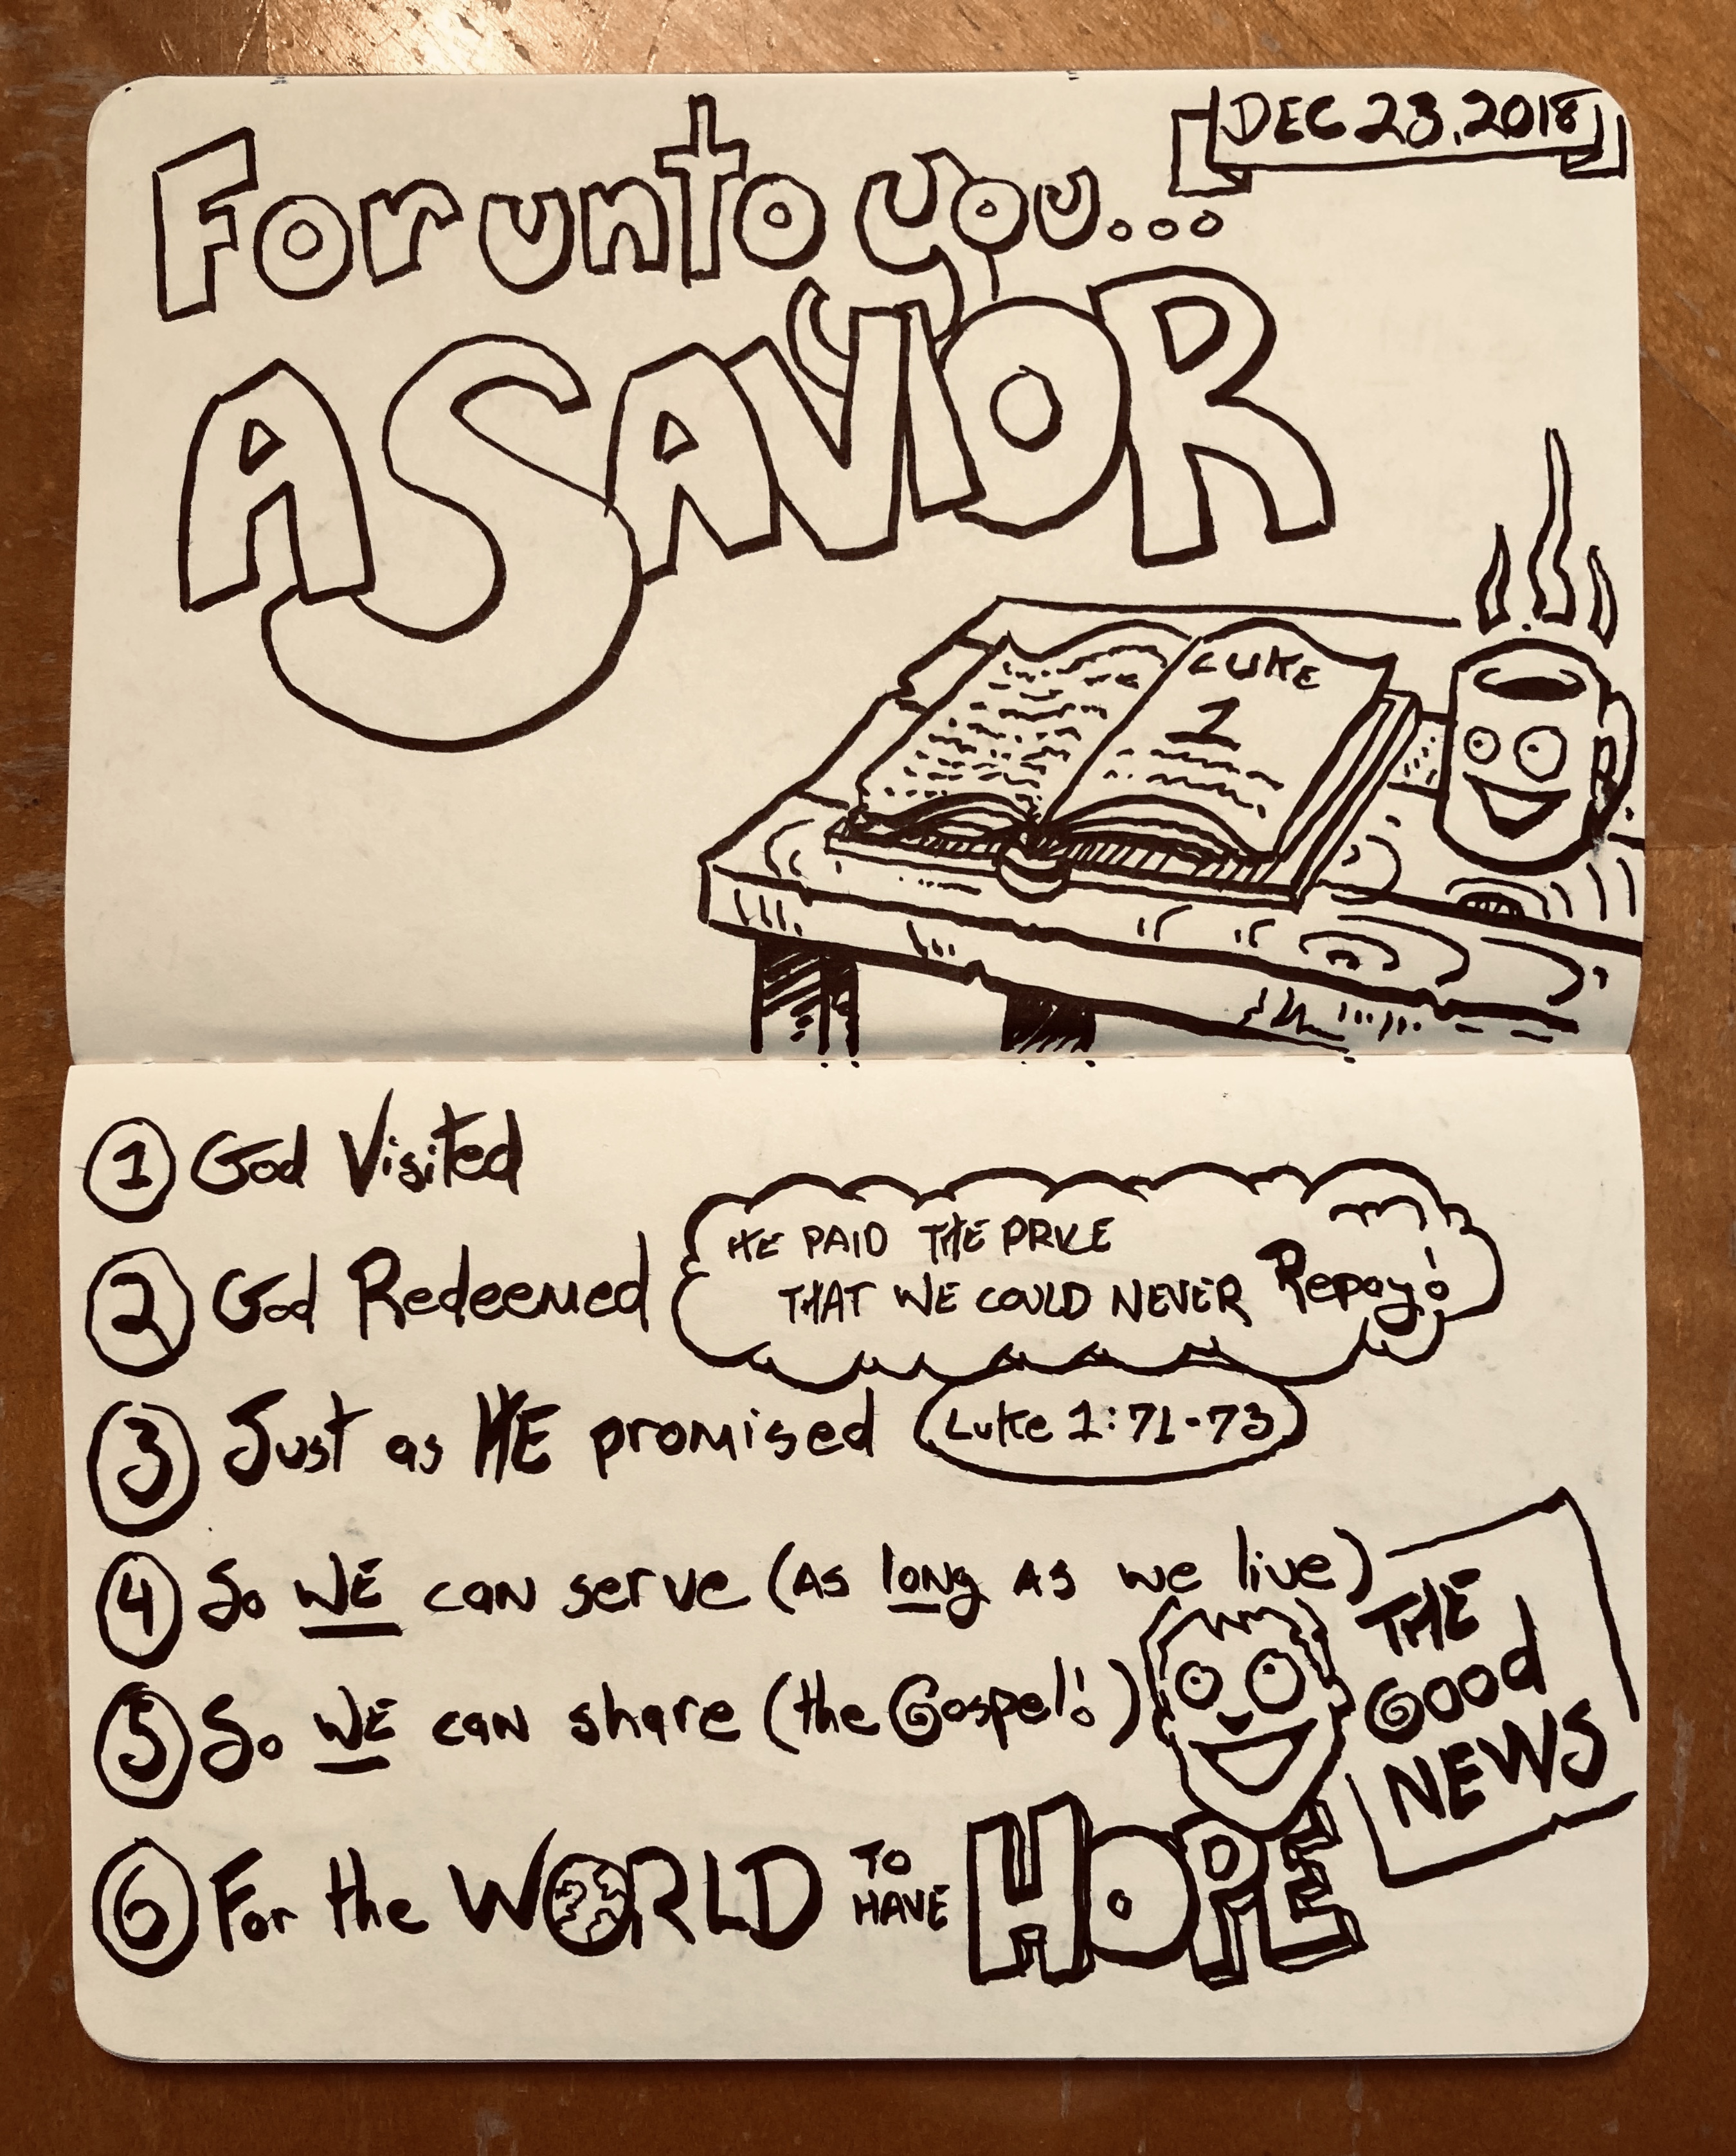 DEC 23, 2018
For unto you...
A SAVIOR
LUKE
1
1 God Visited
2 God Redeemed
HE PAID THE PRICE
THAT WE COULD NEVER Repay!
3 Just as HE promised
Luke 1:71-73
4 So WE can serve (As long As we live)
5 So WE can share (the Gospel!)
THE
GOOd
NEWS
6 For the WORLD TO
HAVE
HOPE